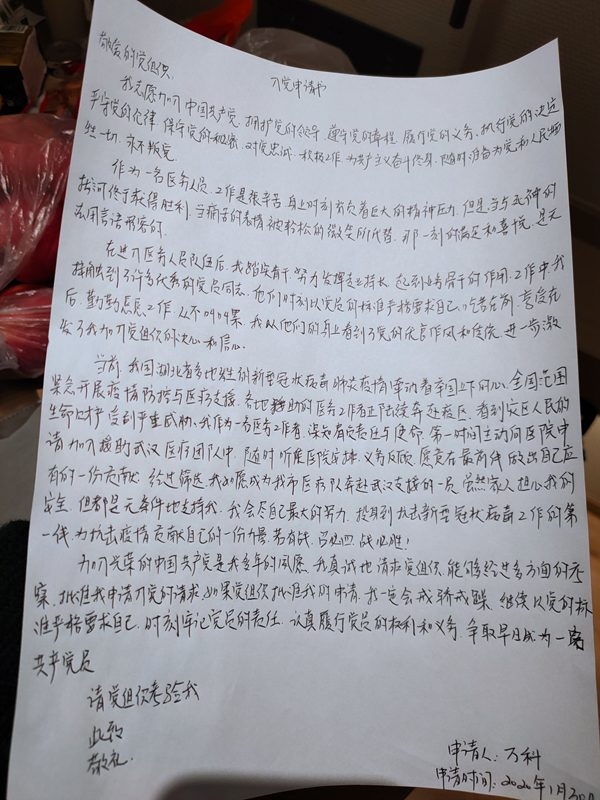 入党申请书
敬爱的党组织:
我志愿加入中国共产党,拥护党的纲领,遵守党的章程,履行党员义务,执行党的决定
严守党的纪律,保守党的秘密,对党忠诚,积极工作,为共产主义奋斗终身,随时准备为党和人民牺
牲一切,永不叛党。
作为一名医务人员,工作是很辛苦,身上时刻背负着巨大的精神压力,但是,当与死神的
拔河终于获得胜利,当痛苦的表情被轻松的微笑所代替,那一刻的满足和喜悦,是无
法用言语形容的。
在进入医务人员队伍后,我踏实肯干,努力发挥专业特长,起到业务骨干的作用,工作中,我
接触到了许多优秀的党员同志,他们时刻以党员的标准严格要求自己,吃苦在前,享受在
后,勤勤恳恳工作,从不叫苦叫累,我从他们的身上看到了党的优良作风和传统,进一步激
发了我加入党组织的决心和信心。
当前,我国湖北省多地发生的新型冠状病毒肺炎疫情牵动着举国上下的心,全国范围
紧急开展疫情防控与医疗支援,各地援助的医务工作者正陆续奔赴疫区,看到灾区人民的
生命财产受到严重威胁,我作为一名医务工作者,深知有责任与使命,第一时间主动向医院申
请加入援助武汉医疗团队中,随时听候医院安排,义务反顾,愿意在最前线做出自己应
有的一份贡献,经过筛选,我如愿成为我市医疗队奔赴武汉支援的一员,虽然家人担心我的
安全,但都是无条件地支持我,我会尽自己最大的努力,投身到抗击新型冠状病毒工作的第
一线,为抗击疫情贡献自己的一份力量,若有战,召必回,战必胜!
加入光荣的中国共产党是我多年的夙愿,我真诚地请求党组织,能够经过多方面的考
察,批准我申请入党的请求,如果党组织批准我的申请,我一定会戒骄戒躁,继续以党的标
准严格要求自己,时刻牢记党员的责任,认真履行党员的权利和义务,争取早日成为一名
共产党员
请党组织考验我
此致
敬礼,
申请人:万科
申请时间:2020年1月30日